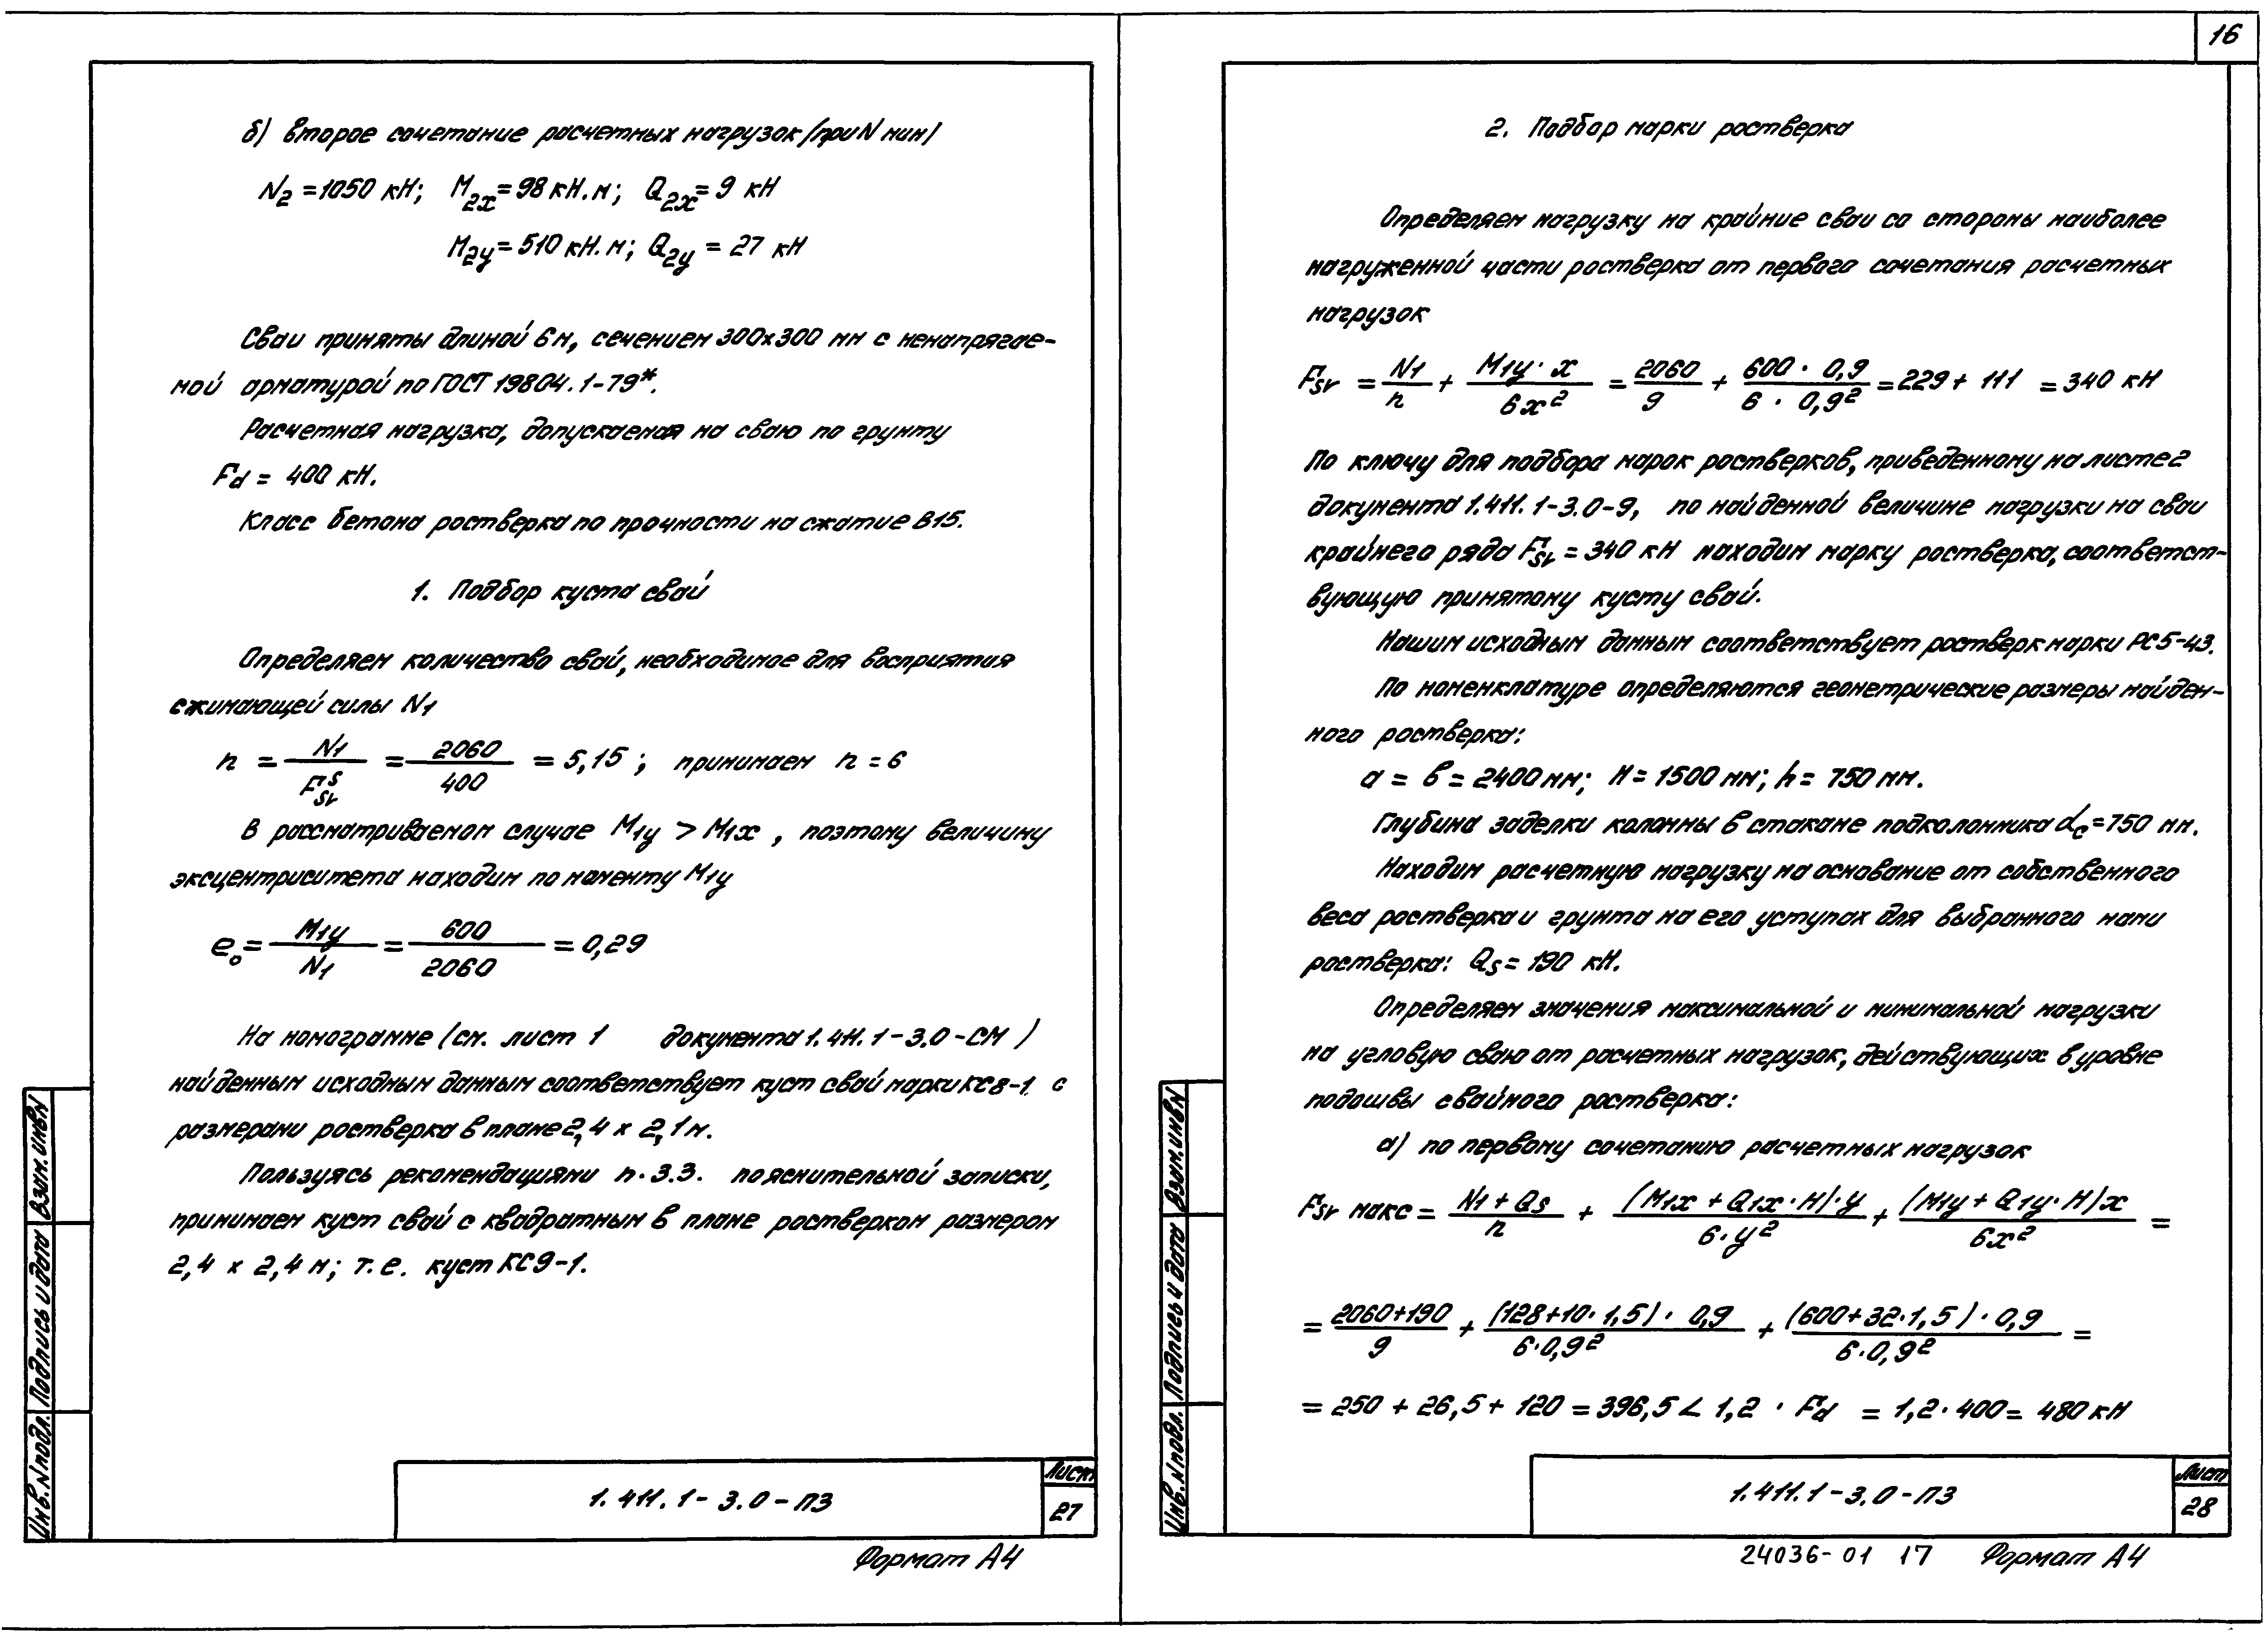 16
б) второе сочетание расчетных нагрузок (при N мин)
N2 = 1050 кН; M2x = 98 кН.м; Q2x = 9 кН
M2y = 510 кН.м; Q2y = 27 кН
Сваи приняты длиной 6м, сечением 300х300 мм с ненапрягае-
мой арматурой по ГОСТ 19804.1-79*.
Расчетная нагрузка, допускаемая на сваю по грунту
Fd = 400 кН.
Класс бетона ростверка по прочности на сжатие В15.
1. Подбор куста свай
Определяем количество свай, необходимое для восприятия
сжимающей силы N1
n = N1/F^s_sv = 2060/400 = 5,15; принимаем n = 6
В рассматриваемом случае M1y > M1x, поэтому величину
эксцентриситета находим по моменту M1y
e₀ = M1y/N1 = 600/2060 = 0,29
На номограмме (см. лист 1 документа 1.411.1-3.0-СМ)
найденным исходным данным соответствует куст свай марки КС8-1 с
размерами ростверка в плане 2,4 х 2,1м.
Пользуясь рекомендациями п.3.3. пояснительной записки,
принимаем куст свай с квадратным в плане ростверком размером
2,4 х 2,4 м; т.е. куст КС9-1.
Взам.инвN
Подпись и дата
Инв.Nподл.
1.411.1-3.0-ПЗ
Лист
27
Формат А4
2. Подбор марки ростверка
Определяем нагрузку на крайние сваи со стороны наиболее
нагруженной части ростверка от первого сочетания расчетных
нагрузок
Fsv = N1/n + M1y·x/6x² = 2060/9 + 600·0,9/6·0,9² = 229 + 111 = 340 кН
По ключу для подбора марок ростверков, приведенному на листе 2
документа 1.411.1-3.0-9, по найденной величине нагрузки на сваи
крайнего ряда Fsv = 340 кН находим марку ростверка, соответст-
вующую принятому кусту свай.
Нашим исходным данным соответствует ростверк марки РС5-43.
По номенклатуре определяются геометрические размеры найден-
ного ростверка:
a = в = 2400 мм; H = 1500 мм; h = 750 мм.
Глубина заделки колонны в стакане подколонника dc = 750 мм.
Находим расчетную нагрузку на основание от собственного
веса ростверка и грунта на его уступах для выбранного нами
ростверка: Qs = 190 кН.
Определяем значения максимальной и минимальной нагрузки
на угловую сваю от расчетных нагрузок, действующих в уровне
подошвы свайного ростверка:
а) по первому сочетанию расчетных нагрузок
Fsv макс = N1 + Qs/n + (M1x + Q1x·H)·y/6·y² + (M1y + Q1y·H)x/6x² =
= 2060+190/9 + (128+10·1,5)·0,9/6·0,9² + (600+32·1,5)·0,9/6·0,9² =
= 250 + 26,5 + 120 = 396,5 < 1,2 · Fd = 1,2·400 = 480 кН
Взам.инвN
Подпись и дата
Инв.Nподл.
1.411.1-3.0-ПЗ
Лист
28
24036-01 17 Формат А4